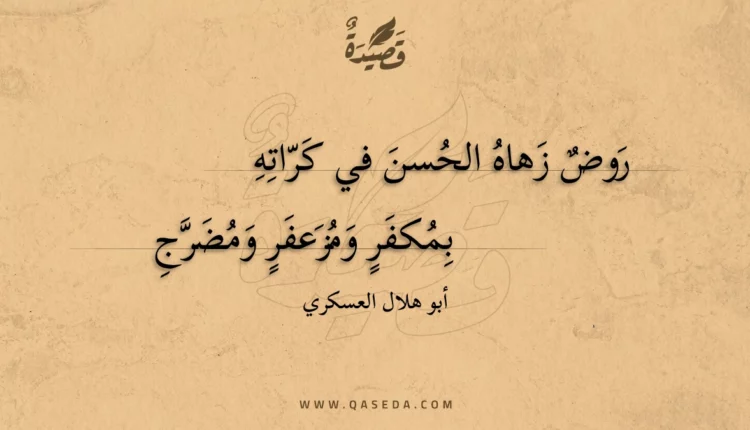 قَصِيدَةٌ
رَوضٌ زَهاهُ الحُسنَ في كَرّاتِهِ
بِمُكفَرٍ وَمُزَعفَرٍ وَمُضَرَّجِ
أبو هلال العسكري
WWW.QASEDA.COM